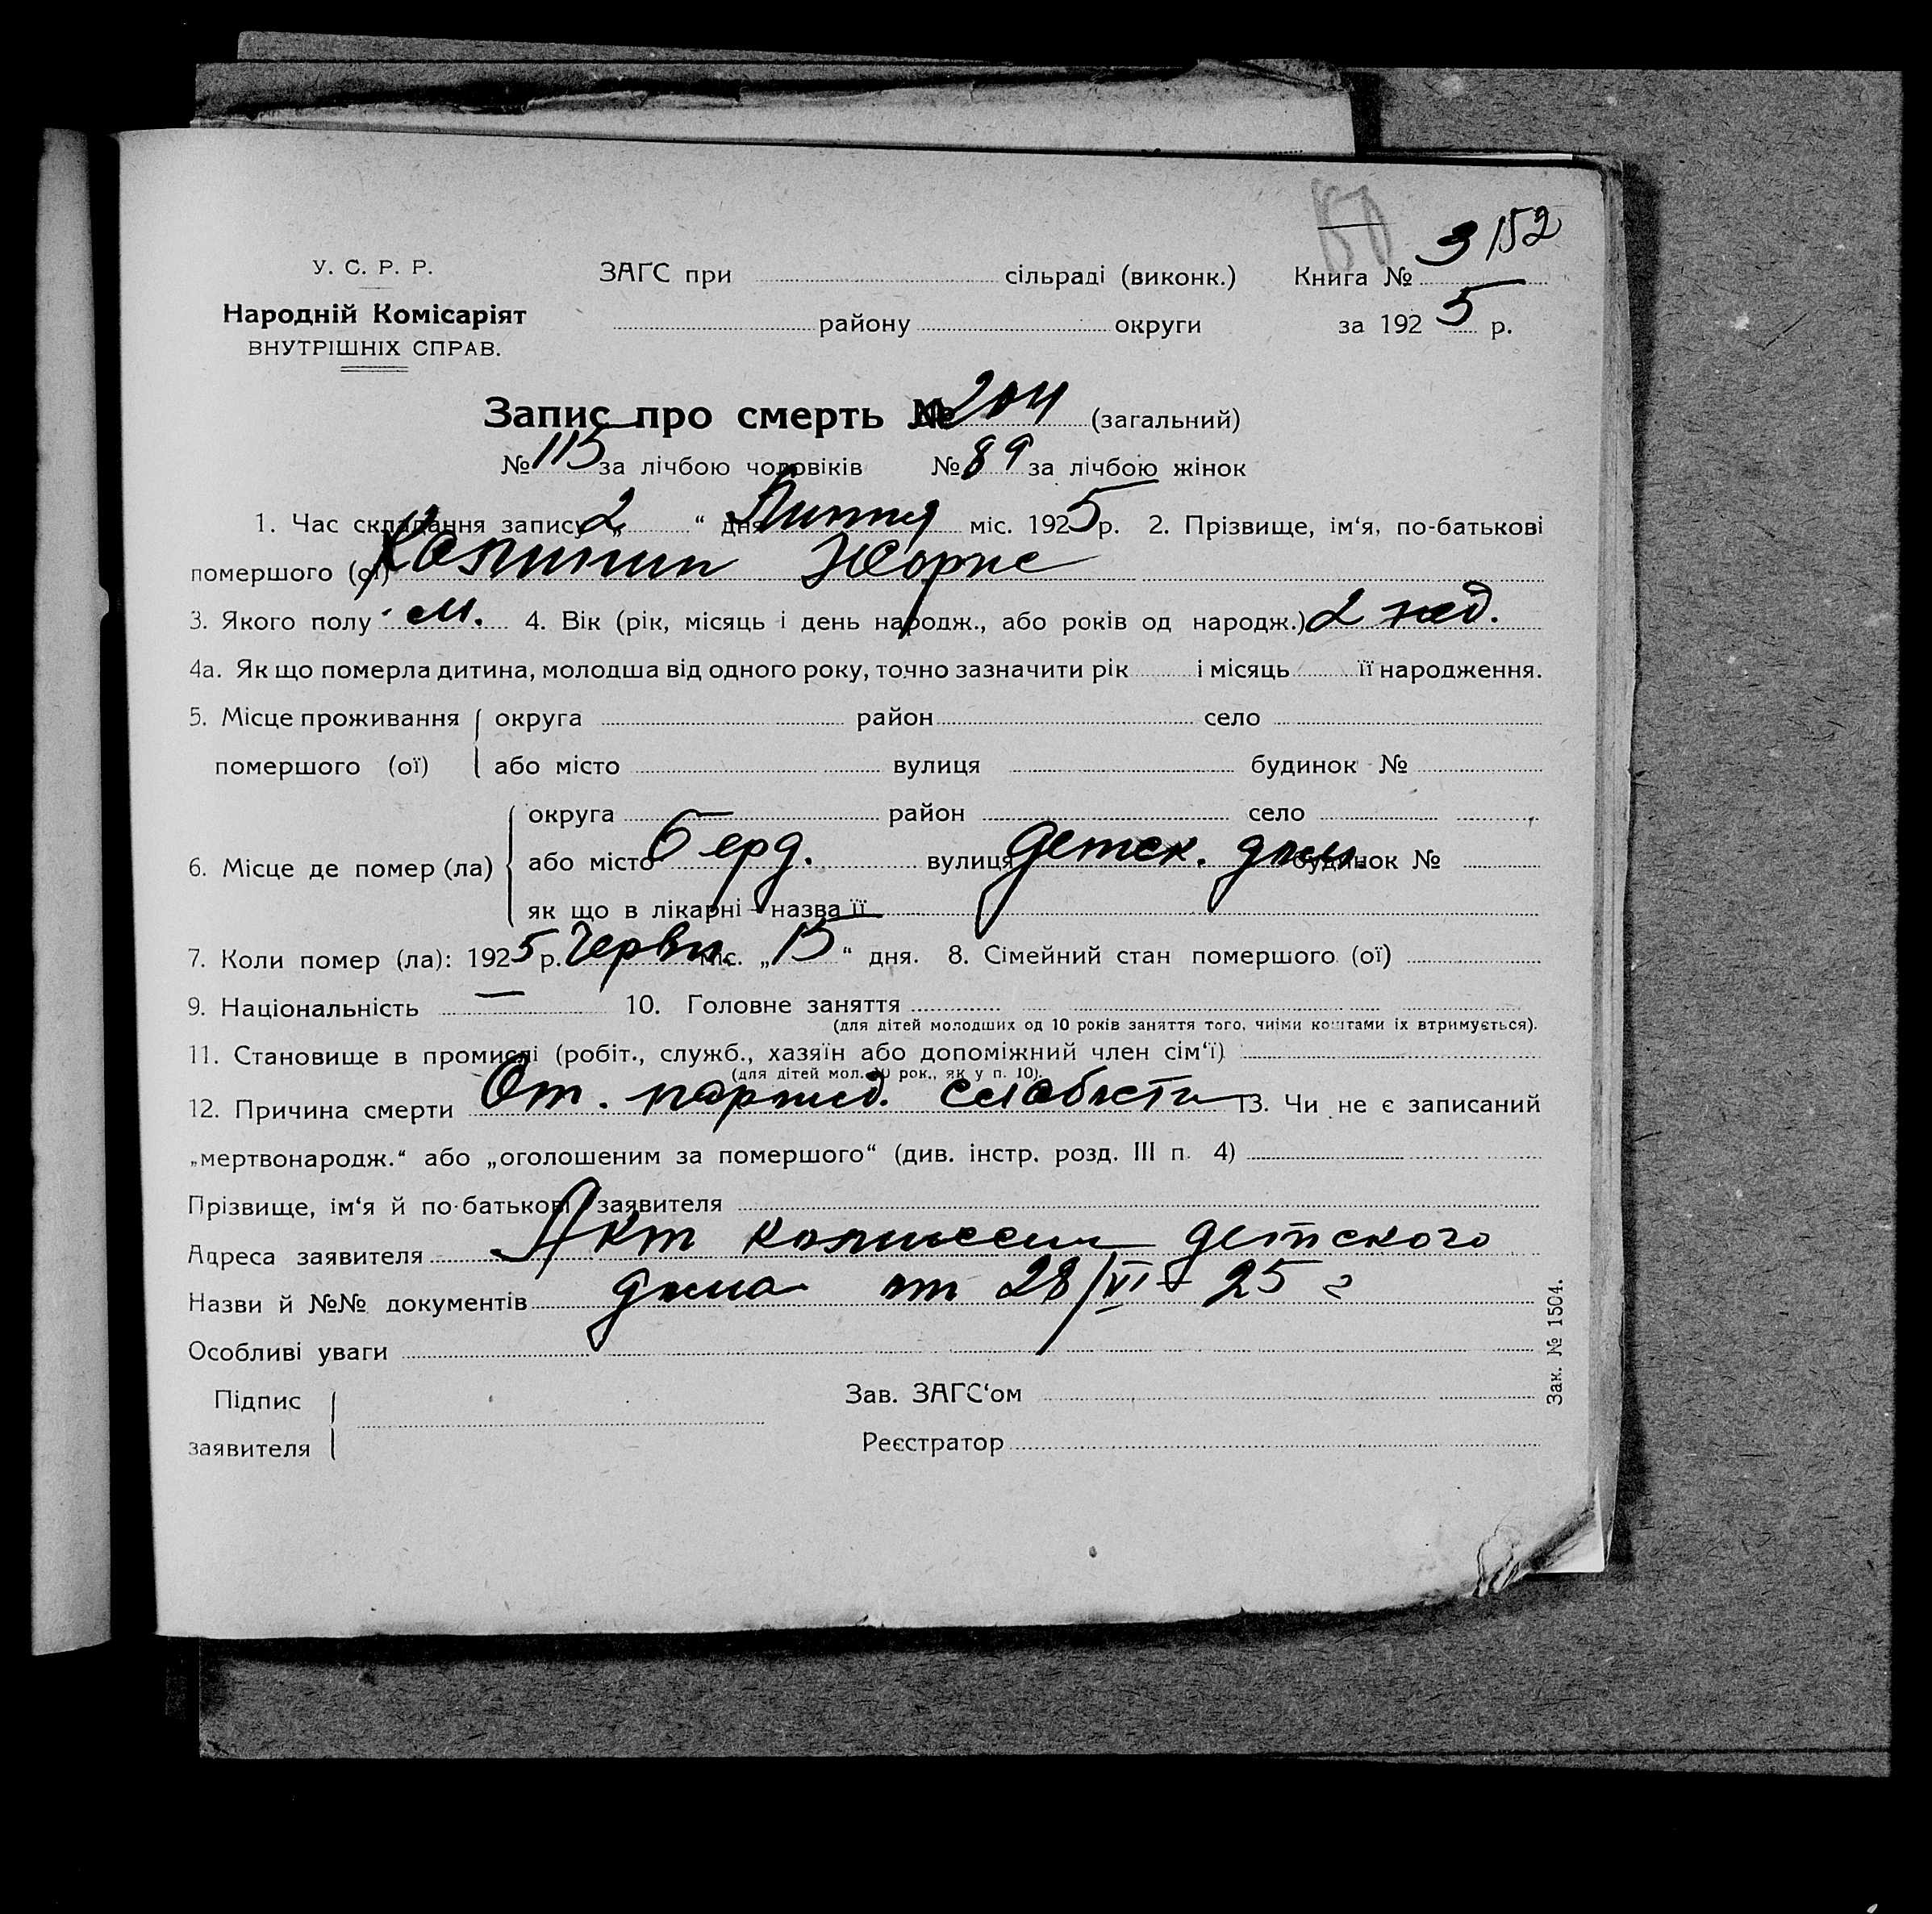 150
3 152
У. С. Р. Р. ЗАГС при сільраді (виконк.) Книга №
Народній Комісаріят району округи за 1925 р.
ВНУТРІШНІХ СПРАВ.
Запис про смерть № 204 (загальний)
№ 115 за лічбою чоловіків № 89 за лічбою жінок
1. Час складання запису „2“ дня Липня міс. 1925 р. 2. Прізвище, ім‘я, по-батькові
помершого (ої) Калинин Жорж
3. Якого полу м. 4. Вік (рік, місяць і день народж., або років од народж.) 2 нед.
4а. Як що померла дитина, молодша від одного року, точно зазначити рік і місяць її народження.
5. Місце проживання округа район село
помершого (ої) або місто вулиця будинок №
округа район село
6. Місце де помер (ла) або місто Берд. вулиця Детск. дом. будинок №
як що в лікарні - назва її
7. Коли помер (ла): 1925 р. Червн. міс. „15“ дня. 8. Сімейний стан помершого (ої)
9. Національність — 10. Головне заняття
(для дітей молодших од 10 років заняття того, чиїми коштами їх втримується).
11. Становище в промислі (робіт., служб., хазяїн або допоміжний член сім‘ї)
(для дітей мол. 10 рок., як у п. 10).
12. Причина смерти От. слабости 13. Чи не є записаний
„мертвонародж.“ або „оголошеним за помершого“ (див. інстр. розд. III п. 4)
Прізвище, ім‘я й по-батькові заявителя
Адреса заявителя Акт комиссии детского
Назви й №№ документів дома от 28/VI - 25 г
Особливі уваги
Підпис Зав. ЗАГС‘ом
заявителя Реєстратор
Зак. № 1504.